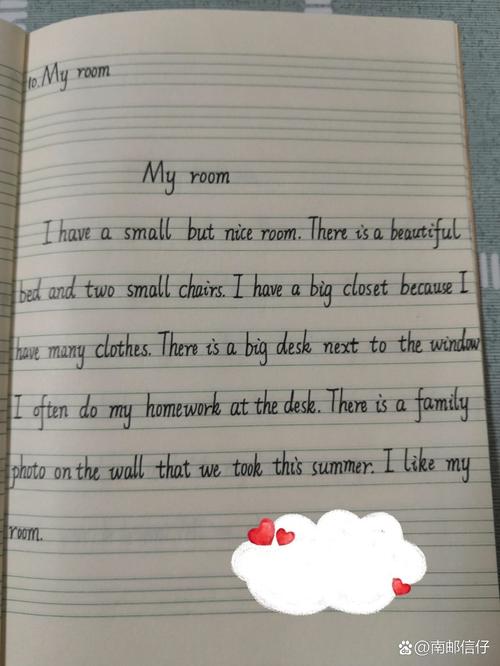 10. My room
My room
I have a small but nice room. There is a beautiful
bed and two small chairs. I have a big closet because I
have many clothes. There is a big desk next to the window
I often do my homework at the desk. There is a family
photo on the wall that we took this summer. I like my
room.
@南邮信仔